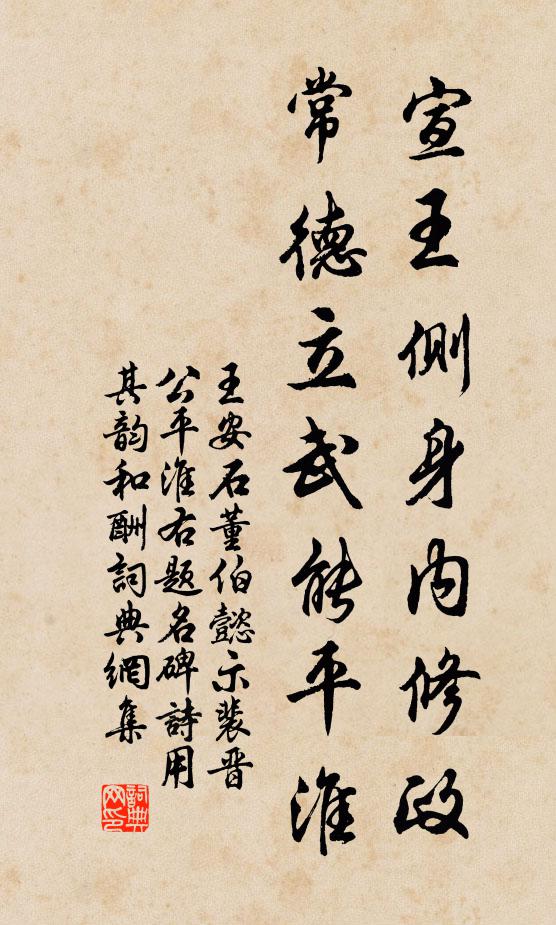 宣王側身內修政
常德立武能平淮
王安石董伯懿示裴晉
公平淮右題名碑詩用
其韵和酬詞典網集
詞典
网印